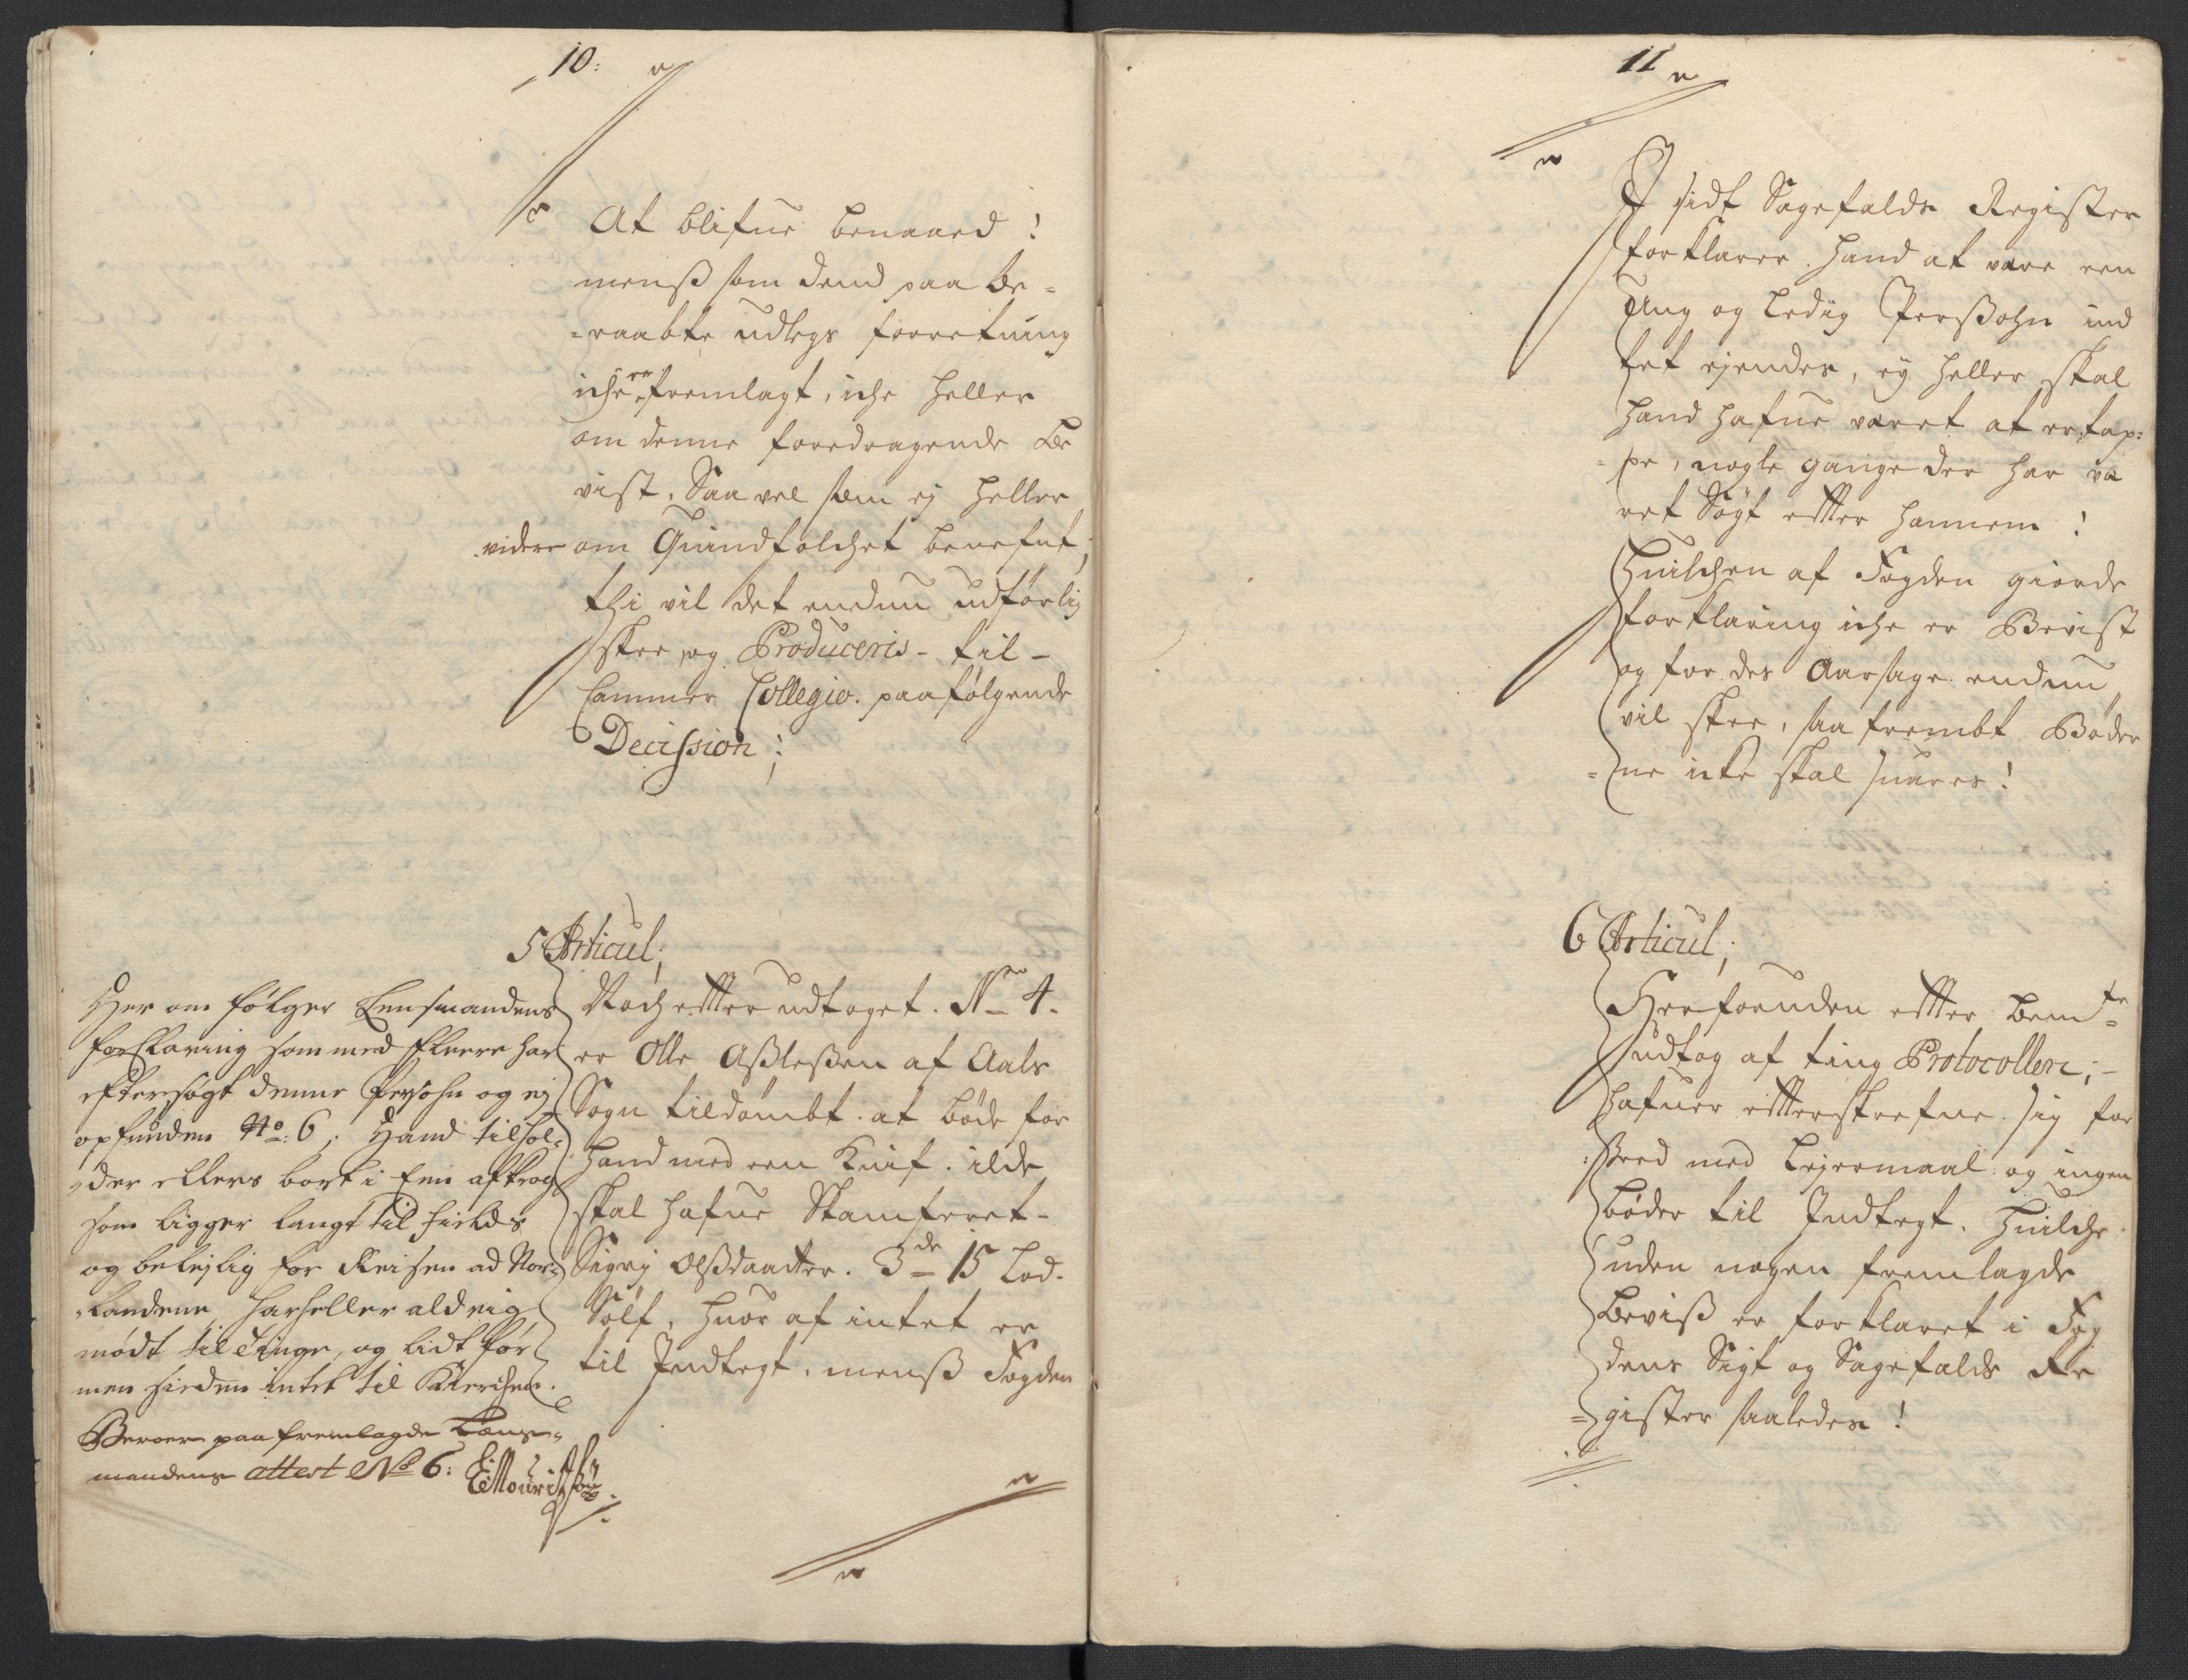 10:
At blifue benaaed!
menß som dend paa be=
=raabte udlegs forretning
iche er fremlagt, iche heller
om denne foredragende be
vist, Saa vel som ej heller
videre om Quindfolchet benefnt;
thi vil det endnu udförlig
skee og Produceris - til -
Cammer Collegio. paafølgende
Decission;
5 Articul;
Noch effter udtoget. No 4.
er Olle Aßleßen af Aals
Sogn tildømbt at bøde for
hand med een Knif. ilde
skal hafue Skamferet -
Sigrj Olßdaatter. 3de 15 Lod.
Sølf, huor af intet er
til Indtegt, menß Fogden
Her om følger Lensmandens
forklaring som med fleere har
eftersøgt denne Persohn og ej
opfunden No: 6; Hand tilhol=
=der ellers bort i Een afkrog
som ligger langt til fields
og belejlig for Reisen ad Nor=
=landene, har heller aldrig
mødt til Tinge, og lidt før
men siden intet til Kierchen.
Beroer paa fremlagde Lens=
mandens attest No 6:
11
I sidt Sagefalds Register
forklarer hand at være een
Ung og Ledig Perßohn ind
tet ejendes, ey heller skal
hand hafue været at ertap=
=pe, nogle gange der har væ
ret Søgt effter hannem!
Huilchen af Fogden giorde
forklaring iche er Bevist
og for des Aarsage endnu
vil skee, saa frembt Bøder
=ne icke skal suares!
6 Articul;
Herforuden effter bemte
udtog af ting Protocollen; -
hafuer effterskrefne sig for
=seed med Lejermaal og ingen
bøder til Indtegt. Huilche
uden nogen fremlagde
Beviß er forklaret i Fog
dens Sigt og Sagefalds Re
=gister saaledes!